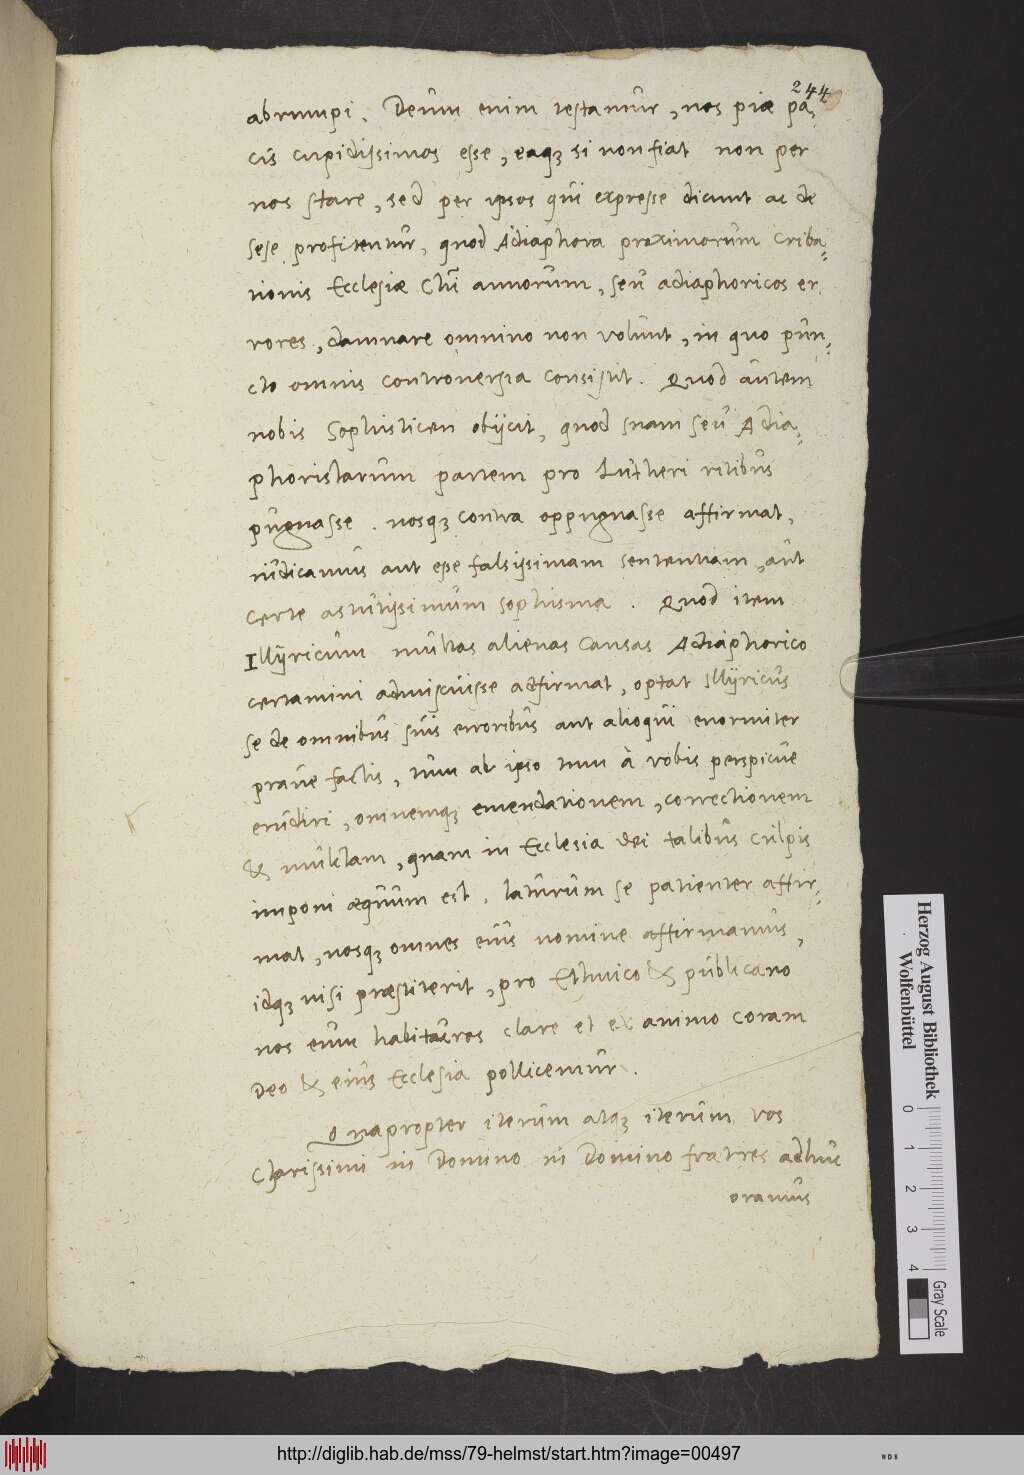 244
abrumpi. Deum enim testamur, nos piæ pa,
cis cupidissimos esse, eaqꝫ si non fiat non per
nos stare, sed per ipsos qui expresse dicunt ac de
sese profitentur, quod Adiaphora proximorum criba=
tionis Ecclesiæ Chri annorum, seu adiaphoricos er,
rores, damnare omnino non volunt, in quo pun=
cto omnis controuersia consistit. Quod autem
nobis Sophisticen obijcit, quod suam seu Adia=
phoristarum partem pro Lutheri ritibus
pugnasse. nosqꝫ contra oppugnasse affirmat,
iudicamus aut esse falsissimam sententiam, aut
certe astutissimum sophisma. Quod item
Illyricum multas alienas causas Adiaphorico
certamini admiscuisse affirmat, optat Illyricus
se de omnibus suis erroribus aut alioqui enormiter
praue factis, tum ab ipso tum à vobis perspicue
erudiri, omnemqꝫ emendationem, correctionem
& mulctam, quam in Ecclesia dei talibus culpis
imponi æquum est, laturum se patienter affir=
mat, nosqꝫ omnes eius nomine affirmamus,
idqꝫ nisi præstiterit, pro Ethnico & publicano
nos eum habituros clare et ex animo coram
Deo & eius Ecclesia pollicemur.
Quapropter iterum atqꝫ iterum vos
Clarissimi in Domino in Domino fratres adhuc
oramus
Herzog August Bibliothek
Wolfenbüttel
0 1 2 3 4
Gray Scale
http://diglib.hab.de/mss/79-helmst/start.htm?image=00497